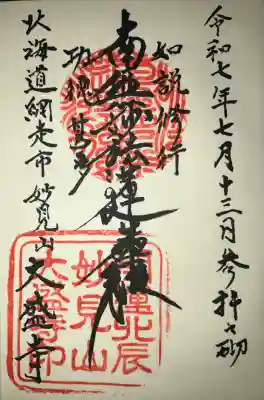 令和七年七月十三日参拝之砌
如説修行
南無妙法蓮華経
功徳甚多
北海道網走市妙見山大盛寺
開運北辰
妙見山